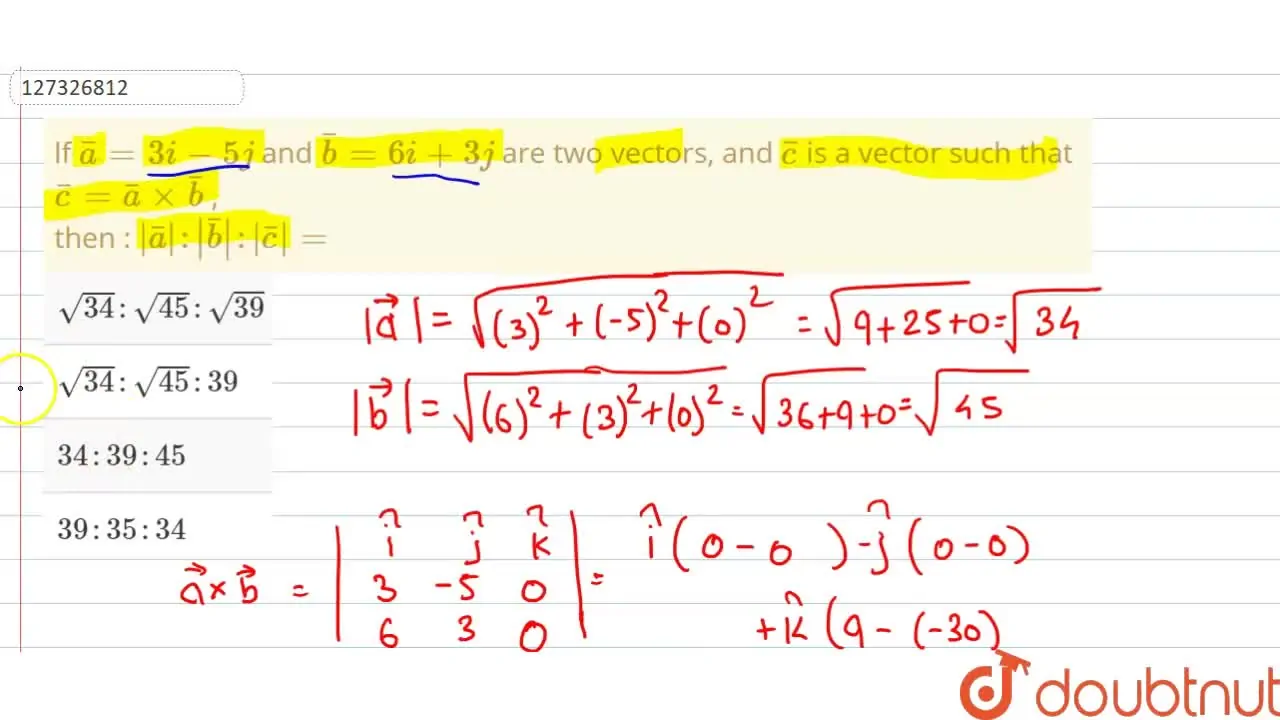 127326812
If a̅ = 3i − 5j and b̅ = 6i + 3j are two vectors, and c̅ is a vector such that
c̅ = a̅ × b̅ ,
then : |a̅| : |b̅| : |c̅| =
√34 : √45 : √39
√34 : √45 : 39
34 : 39 : 45
39 : 35 : 34
|a⃗| = √(3)² + (-5)² + (0)² = √9+25+0 = √34
|b⃗| = √(6)² + (3)² + (0)² = √36+9+0 = √45
a⃗ × b⃗ = | î ĵ k̂ | = î (0 - 0 ) - ĵ (0 - 0)
3 -5 0
6 3 0
+ k̂ (9 - (-30)
doubtnut